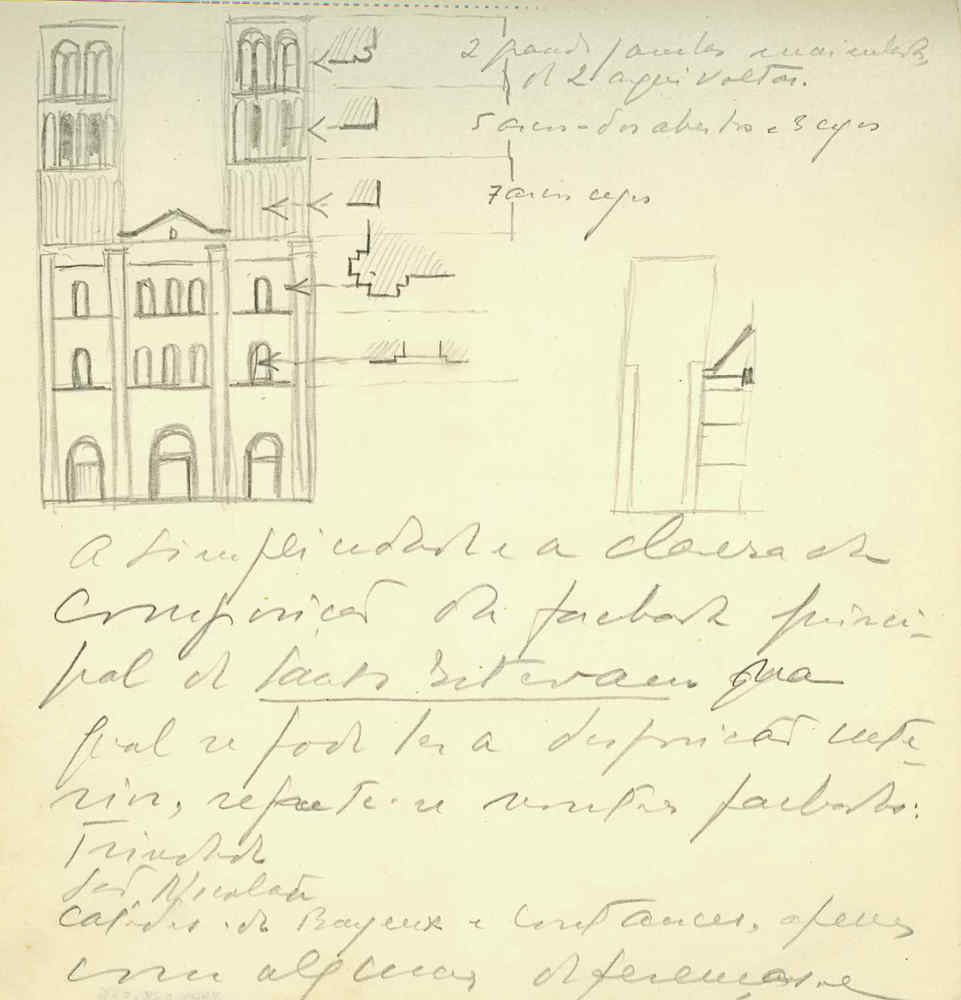 2 grandes janelas
de 2 arquivoltas.
5 arcos - dois abertos e 3 cegos
7 arcos cegos
A simplicidade e a clareza da
composição da fachada princi-
pal de Santo Estevam na
qual se pode ler a disposição inte-
rior, repete-se noutras fachadas:
Trindade
São Nicolau
Catedrais de Bayeux e Coutances, apenas
com algumas diferenças e